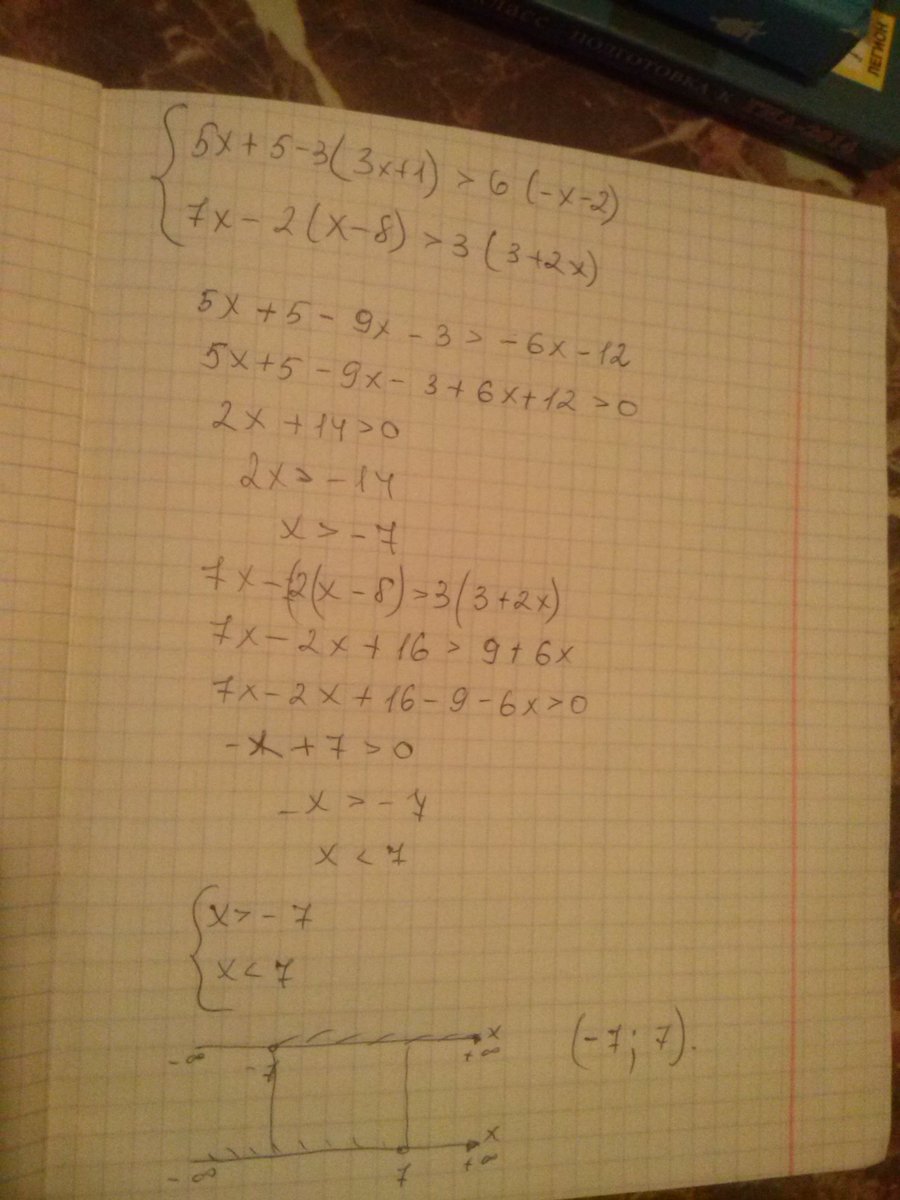 класс
ПОДГОТОВКА К
ЛЕГИОН
5x + 5 - 3(3x+1) > 6(-x-2)
7x - 2(x-8) > 3(3+2x)
5x + 5 - 9x - 3 > -6x - 12
5x + 5 - 9x - 3 + 6x + 12 > 0
2x + 14 > 0
2x > -14
x > -7
7x - 2(x-8) > 3(3+2x)
7x - 2x + 16 > 9 + 6x
7x - 2x + 16 - 9 - 6x > 0
-x + 7 > 0
-x > -7
x < 7
x > -7
x < 7
-∞ -7 x +∞
(-7; 7).
-∞ 7 x +∞